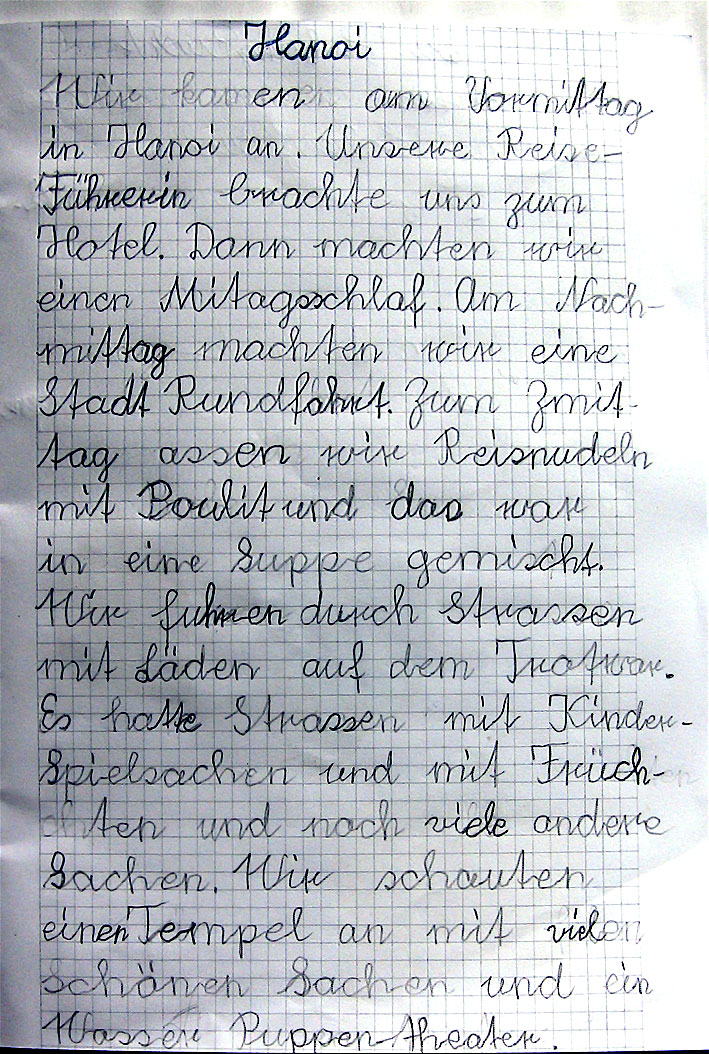 Hanoi
Wir kamen am Vormittag
in Hanoi an. Unsere Reise-
Führerin brachte uns zum
Hotel. Dann machten wir
einen Mitagsschlaf. Am Nach-
mittag machten wir eine
Stadt Rundfahrt. Zum Zmit-
tag assen wir Reisnudeln
mit Poulit und das war
in eine Suppe gemischt.
Wir fuhren durch Strassen
mit Läden auf dem Trotwar.
Es hatte Strassen mit Kinder-
Spielsachen und mit Früch-
ten und noch viele andere
Sachen. Wir schauten
einen Tempel an mit vielen
schönen Sachen und ein
Wasser Puppen-theater.